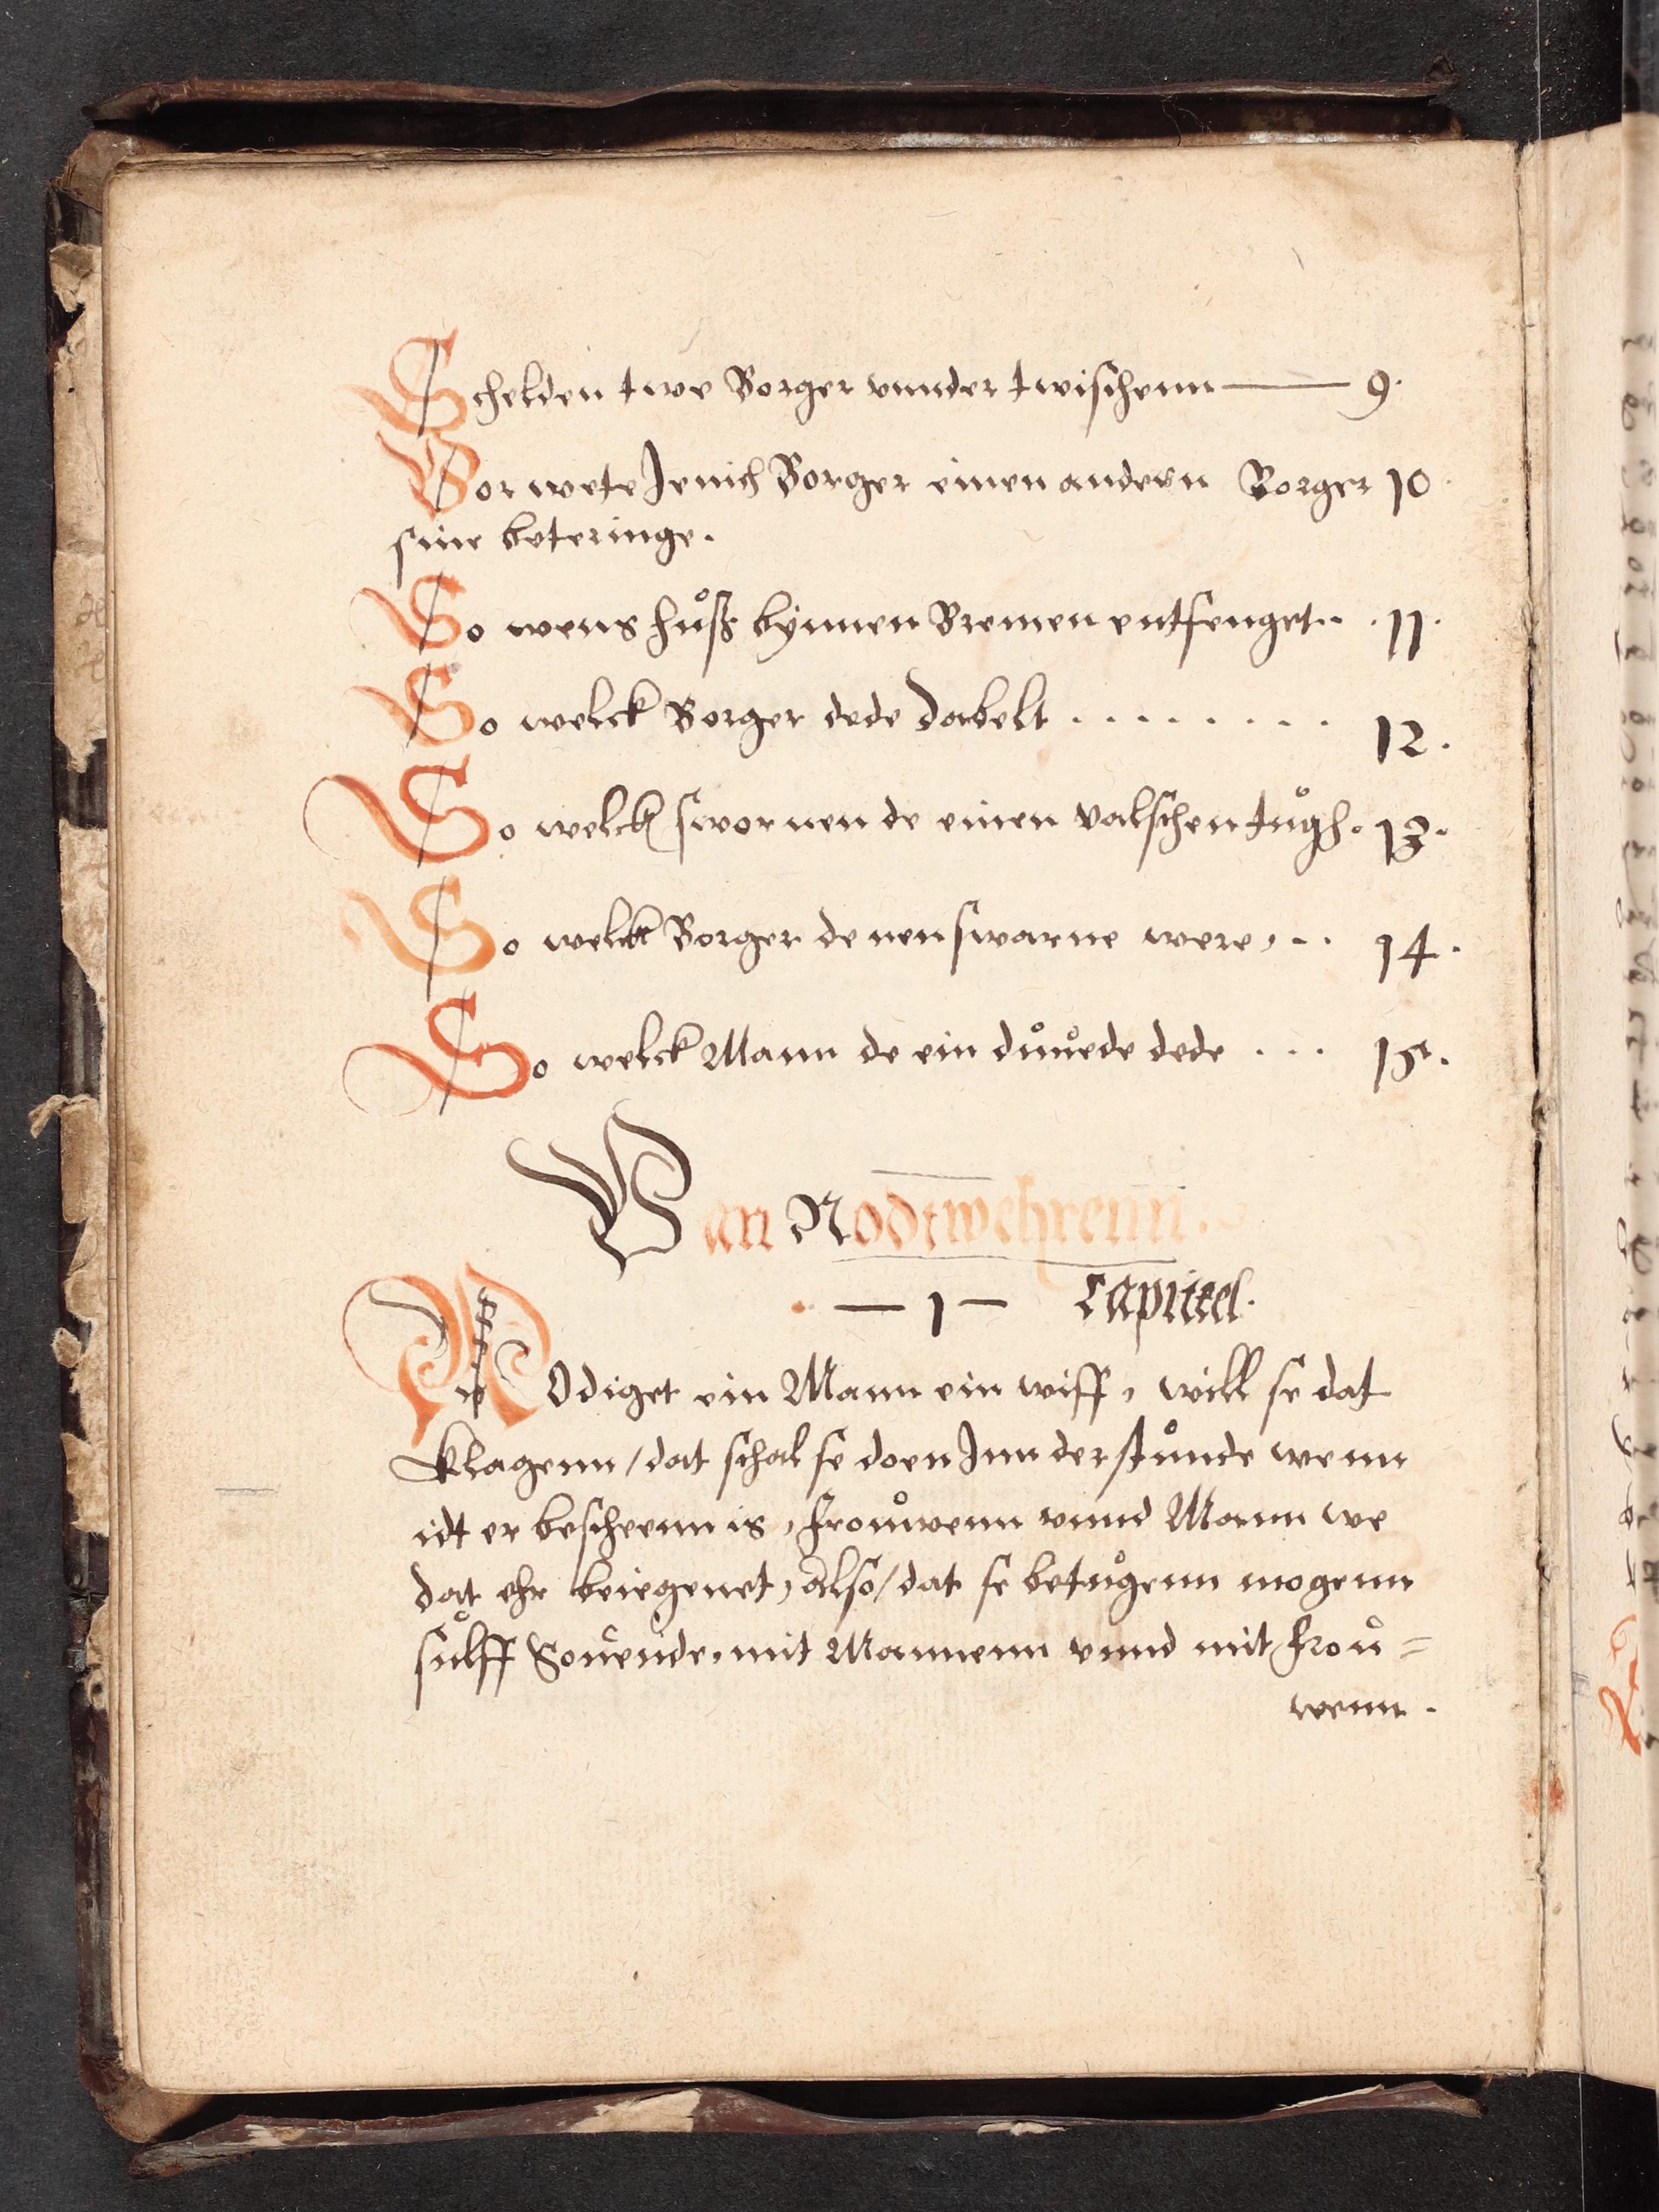 Schelden twe Borger vnnder twischenn — 9.
Vorwete Jenich Borger einen andern Borger 10.
sine beteringe.
So wens huß bynnen Bremen entfenget .. . 11.
So welck Borger dede dabelt . . . . . . . . . 12.
So welck swornen de einen valschen tugh. 13.
So welck Borger de nen swarne were, .. 14.
So welck Mann de ein duuede dede ... 15.
Van Nodtwehrenn.
— 1 — Capittel.
NOdiget ein Mann ein wiff, will se dat
klagenn / dat schal se doen Jnn der stunde wenn
idt er bescheenn is, frouwenn vnnd Mann we
dat ehr beiegenet, also / dat se betugenn mogenn
sulff Souende, mit Mannenn vnnd mit frou=
wenn.